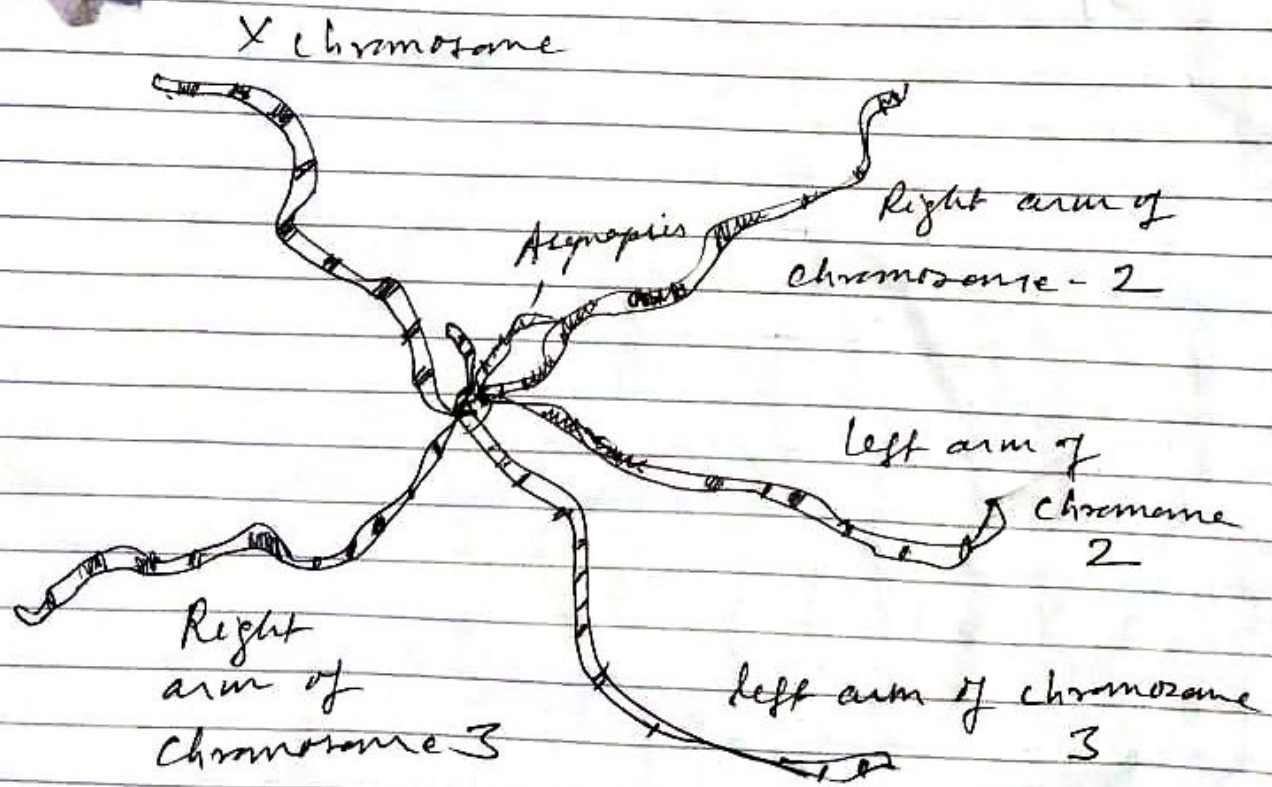 X chromosome
Asynapsis
Right arm of
chromosome - 2
left arm of
chromome
2
Right
arm of
chromosome 3
left arm of chromosome
3